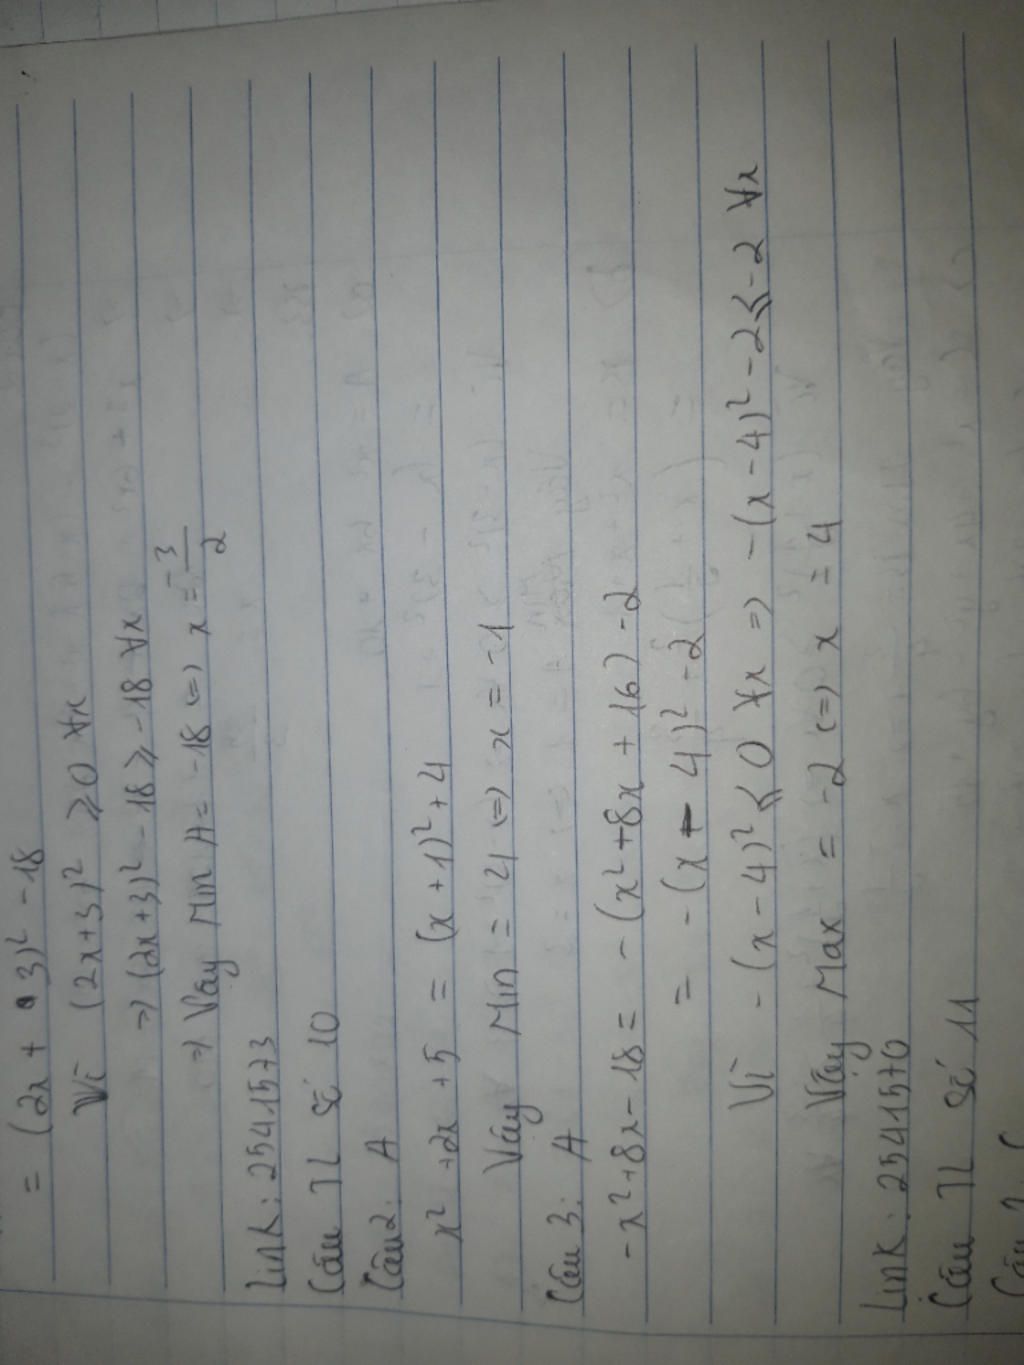 = (2x + 3)² - 18
Vì (2x+3)² ⩾ 0 ∀x
⇒ (2x+3)² - 18 ⩾ -18 ∀x
⇒ Vậy Min A = -18 ⇔ x = -3/2
Link: 2541573
Câu TL số 10
Câu 2: A
x² + 2x + 5 = (x + 1)² + 4
Vậy Min = 4 ⇔ x = -1
Câu 3: A
-x² + 8x - 18 = - (x² + 8x + 16) - 2
= - (x - 4)² - 2
Vì - (x - 4)² ⩽ 0 ∀x ⇒ - (x - 4)² - 2 ⩽ -2 ∀x
Vậy Max = -2 ⇔ x = 4
Link: 2541570
Câu TL số 11